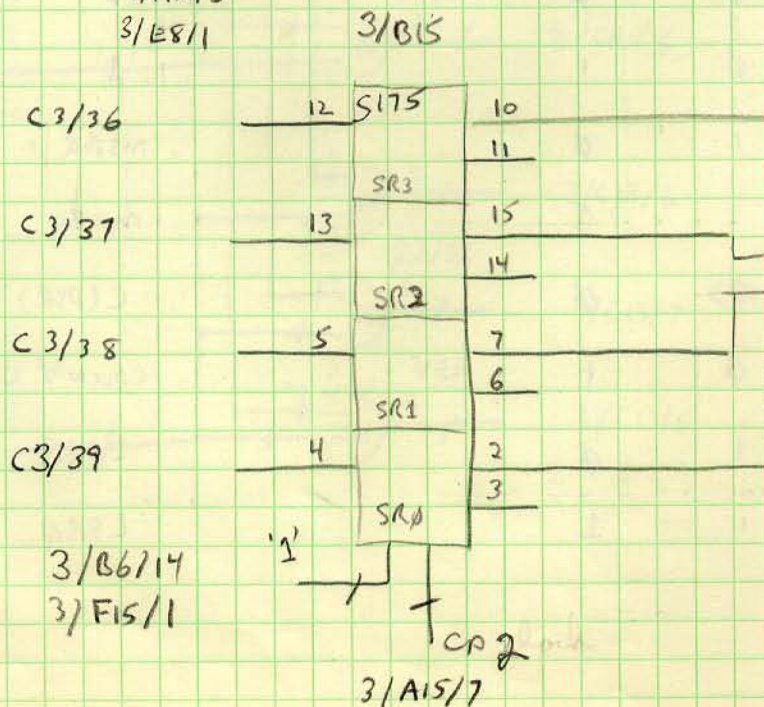 3/E8/1 3/B15
C3/36 12 S175 10
11
SR3
C3/37 13 15
14
SR2
C3/38 5 7
6
SR1
C3/39 4 2
3
SRØ
'1'
3/B6/14
3/F15/1
CP2
3/A15/7